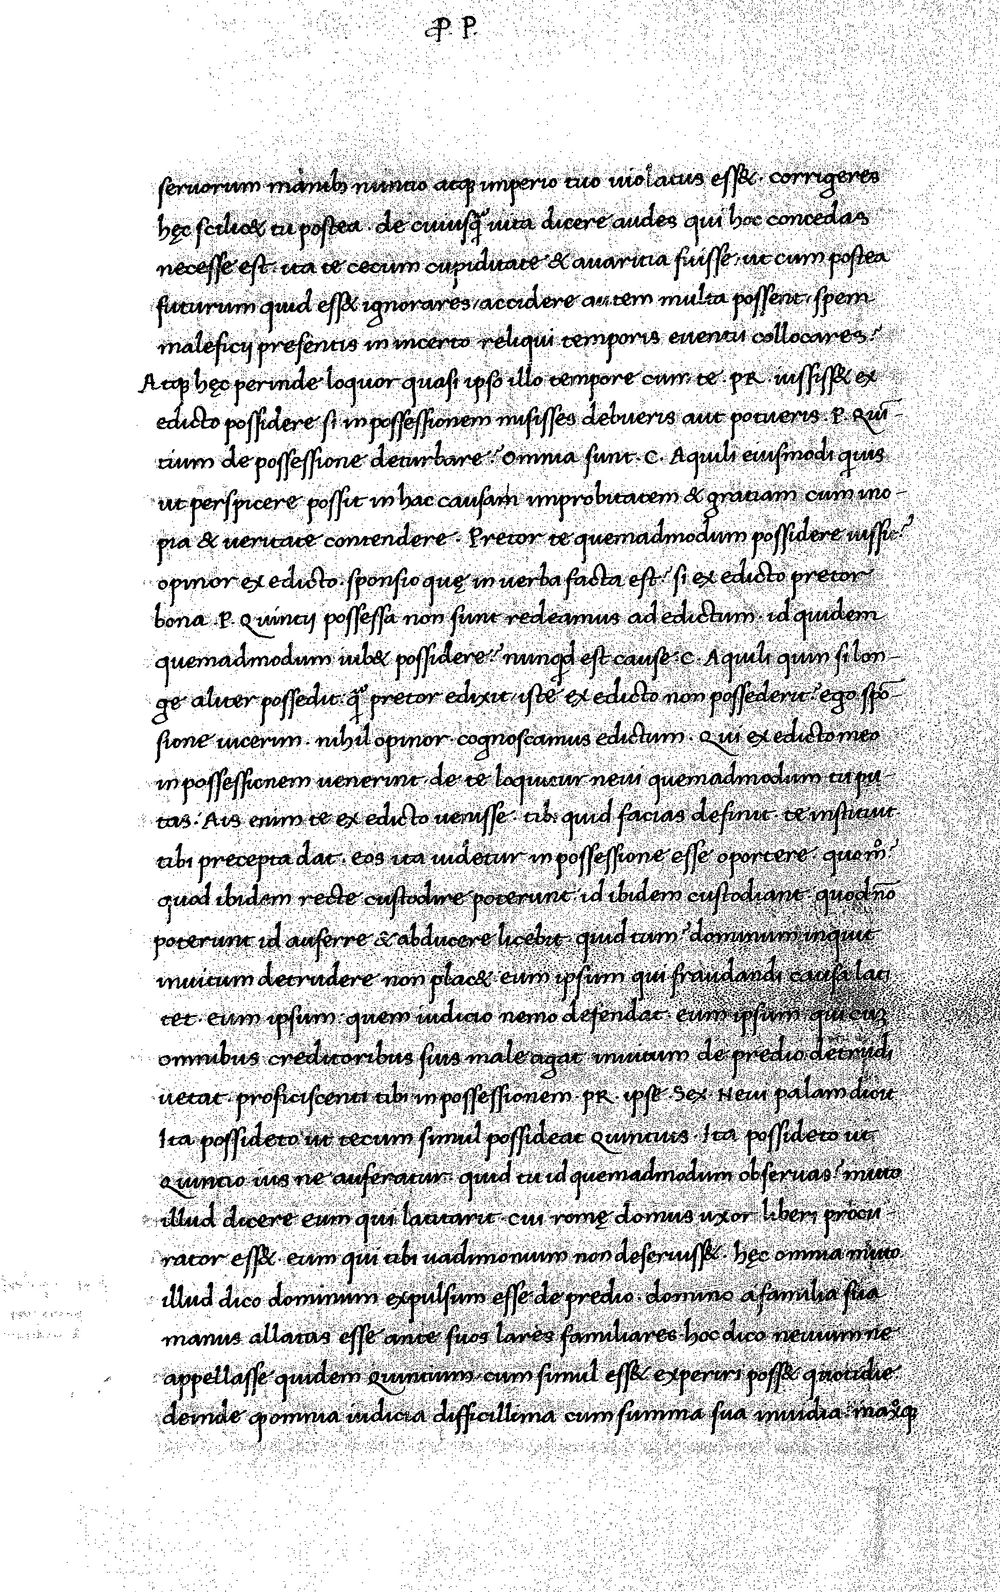 P. P.
seruorum manib; nuntio atq; imperio tuo uiolatus ess&. corrigeres
hęc scilic& tu postea. de cuiusq̃ uita dicere audes qui hoc concedas
necesse est. ita te cecum cupiditate & auaritia fuisse, ut cum postea
futurum quid ess& ignorares, accidere autem multa possent, spem
maleficij presentis in incerto reliqui temporis euentu collocares?
Atq; hęc perinde loquor quasi ipso illo tempore cum te. PR. iussiss& ex
edicto possidere si in possessionem misisses debueris aut potueris. P. Qui-
tium de possessione deturbare? Omnia sunt. C. Aquili eiusmodi quis
ut perspicere possit in hac causam improbitatem & gratiam cum ino-
pia & ueritate contendere. Pretor te quemadmodum possidere iussit?
opinor ex edicto. sponsio quę in uerba facta est? si ex edicto pretor
bona. P. Quintij possessa non sunt redeamus ad edictum. id quidem
quemadmodum iub& possidere? nunqd est cause C. Aquili quin si lon-
ge aliter possedit. q̃ pretor edixit, iste ex edicto non possederit? ego spō-
sione uicerim. nihil opinor. cognoscamus edictum. Qui ex edicto meo
in possessionem uenerint. de te loquitur neui quemadmodum tu pu-
tas. Ais enim te ex edicto uenisse. tibi quid facias definit. te instituit
tibi precepta dat. eos ita uidetur in possessione esse oportere. quom̊?
quod ibidem recte custodire poterunt. id ibidem custodiant. quod nō
poterunt id auferre & abducere licebit. quid tum? dominum inquit
inuitum detrudere non plac& eum ipsum qui fraudandi causa lati
tet. eum ipsum. quem iudicio nemo defendat. eum ipsum. qui cuz
omnibus creditoribus suis male agat inuitum de predio detrudi
uetat. proficiscenti tibi in possessionem. PR. ipse. Sex. Neui palam dicit
Ita possideto ut tecum simul possideat Quintius. Ita possideto ut
Quintio uis ne auferatur. quid tu id quemadmodum obseruas? mitto
illud dicere eum qui latitarit. cui romę domus uxor liberi procu-
rator ess&. eum qui tibi uadimonium non deseruiss&. hęc omnia mitto
illud dico dominum expulsum esse de predio. domino a familia sua
manus allatas esse ante suos lares familiares hoc dico neuium ne
appellasse quidem Quintium cum simul ess& experiri poss& quotidie
deinde ꝙ omnia iudicia difficillima cum summa sua inuidia. maxq;